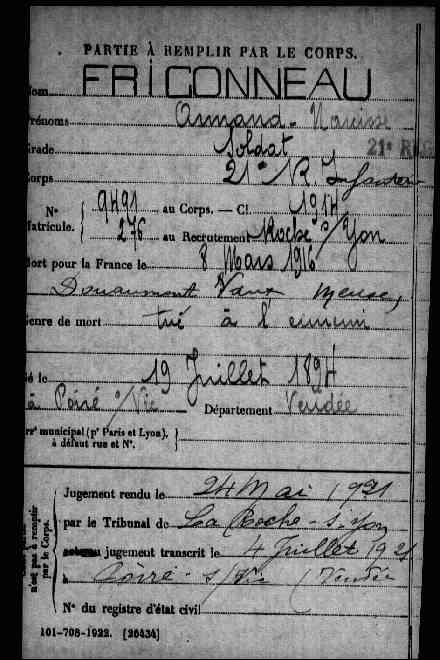 PARTIE À REMPLIR PAR LE CORPS.
Nom FRIGONNEAU
Prénoms Armand - Narcisse
Grade Soldat
21e
Corps 21e R. Infanterie
N° 9491 au Corps. — Cl. 1914
Matricule. 276 au Recrutement Roche s/Yon
Mort pour la France le 8 Mars 1916
à Douaumont Vaux Meuse,
Genre de mort tué à l'ennemi
Né le 19 Juillet 1894
à Poiré s/Vie Département Vendée
Arrt municipal (pr Paris et Lyon), à défaut rue et N°.
Jugement rendu le 24 Mai 1921
par le Tribunal de La Roche-s/Yon
jugement transcrit le 4 Juillet 1921
à Poiré-s/Vie (Vendée
N° du registre d'état civil
n'est pas à remplir
par le Corps.
101-708-1922. [26434]